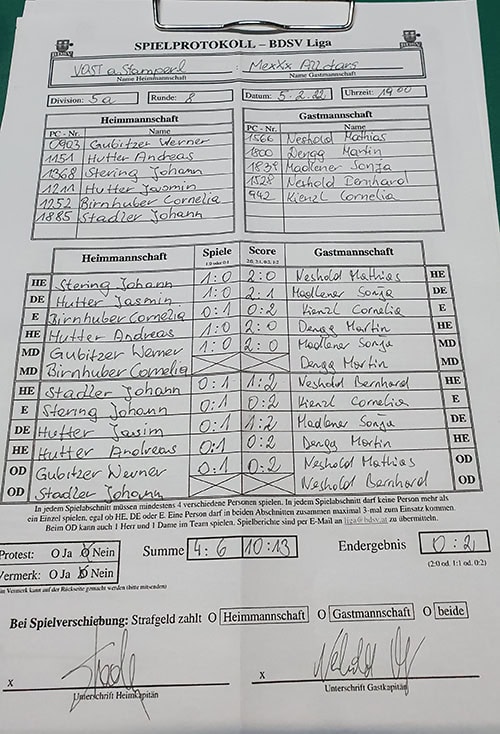 SPIELPROTOKOLL – BDSV Liga
Vast a Stamperl : MexXx Allstars
Name Heimmannschaft Name Gastmannschaft
Division: 5a Runde: 8 Datum: 5.2.22 Uhrzeit: 19:00
Heimmannschaft Gastmannschaft
PC - Nr. Name PC - Nr. Name
0903 Gubitzer Werner 1566 Neshold Mathias
1151 Hutter Andreas 1800 Dengg Martin
1368 Stering Johann 1839 Madlener Sonja
1211 Hutter Jasmin 1528 Neshold Bernhard
1252 Birnhuber Cornelia 942 Kienzl Cornelia
1885 Stadler Johann
Heimmannschaft Spiele Score Gastmannschaft
1:0 oder 0:1 2:0, 2:1, 0:2, 1:2
HE Stering Johann 1:0 2:0 Neshold Mathias HE
DE Hutter Jasmin 1:0 2:1 Madlener Sonja DE
E Birnhuber Cornelia 0:1 0:2 Kienzl Cornelia E
HE Hutter Andreas 1:0 2:0 Dengg Martin HE
MD Gubitzer Werner 1:0 2:0 Madlener Sonja MD
MD Birnhuber Cornelia Dengg Martin MD
HE Stadler Johann 0:1 1:2 Neshold Bernhard HE
E Stering Johann 0:1 0:2 Kienzl Cornelia E
DE Hutter Jasim 0:1 1:2 Madlener Sonja DE
HE Hutter Andreas 0:1 0:2 Dengg Martin HE
OD Gubitzer Werner 0:1 0:2 Neshold Mathias OD
OD Stadler Johann Neshold Bernhard OD
In jedem Spielabschnitt müssen mindestens 4 verschiedene Personen spielen. In jedem Spielabschnitt darf keine Person mehr als
ein Einzel spielen, egal ob HE, DE oder E. Eine Person darf in beiden Abschnitten zusammen maximal 3-mal zum Einsatz kommen.
Beim OD kann auch 1 Herr und 1 Dame im Team spielen. Spielberichte sind per E-Mail an liga@bdsv.at zu übermitteln.
Protest: O Ja O Nein Summe 4:6 10:13 Endergebnis 0:2
Vermerk: O Ja O Nein (2:0 od. 1:1 od. 0:2)
in Vermerk kann auf der Rückseite gemacht werden (bitte mitsenden)
Bei Spielverschiebung: Strafgeld zahlt O Heimmannschaft O Gastmannschaft O beide
X X
Unterschrift Heimkapitän Unterschrift Gastkapitän